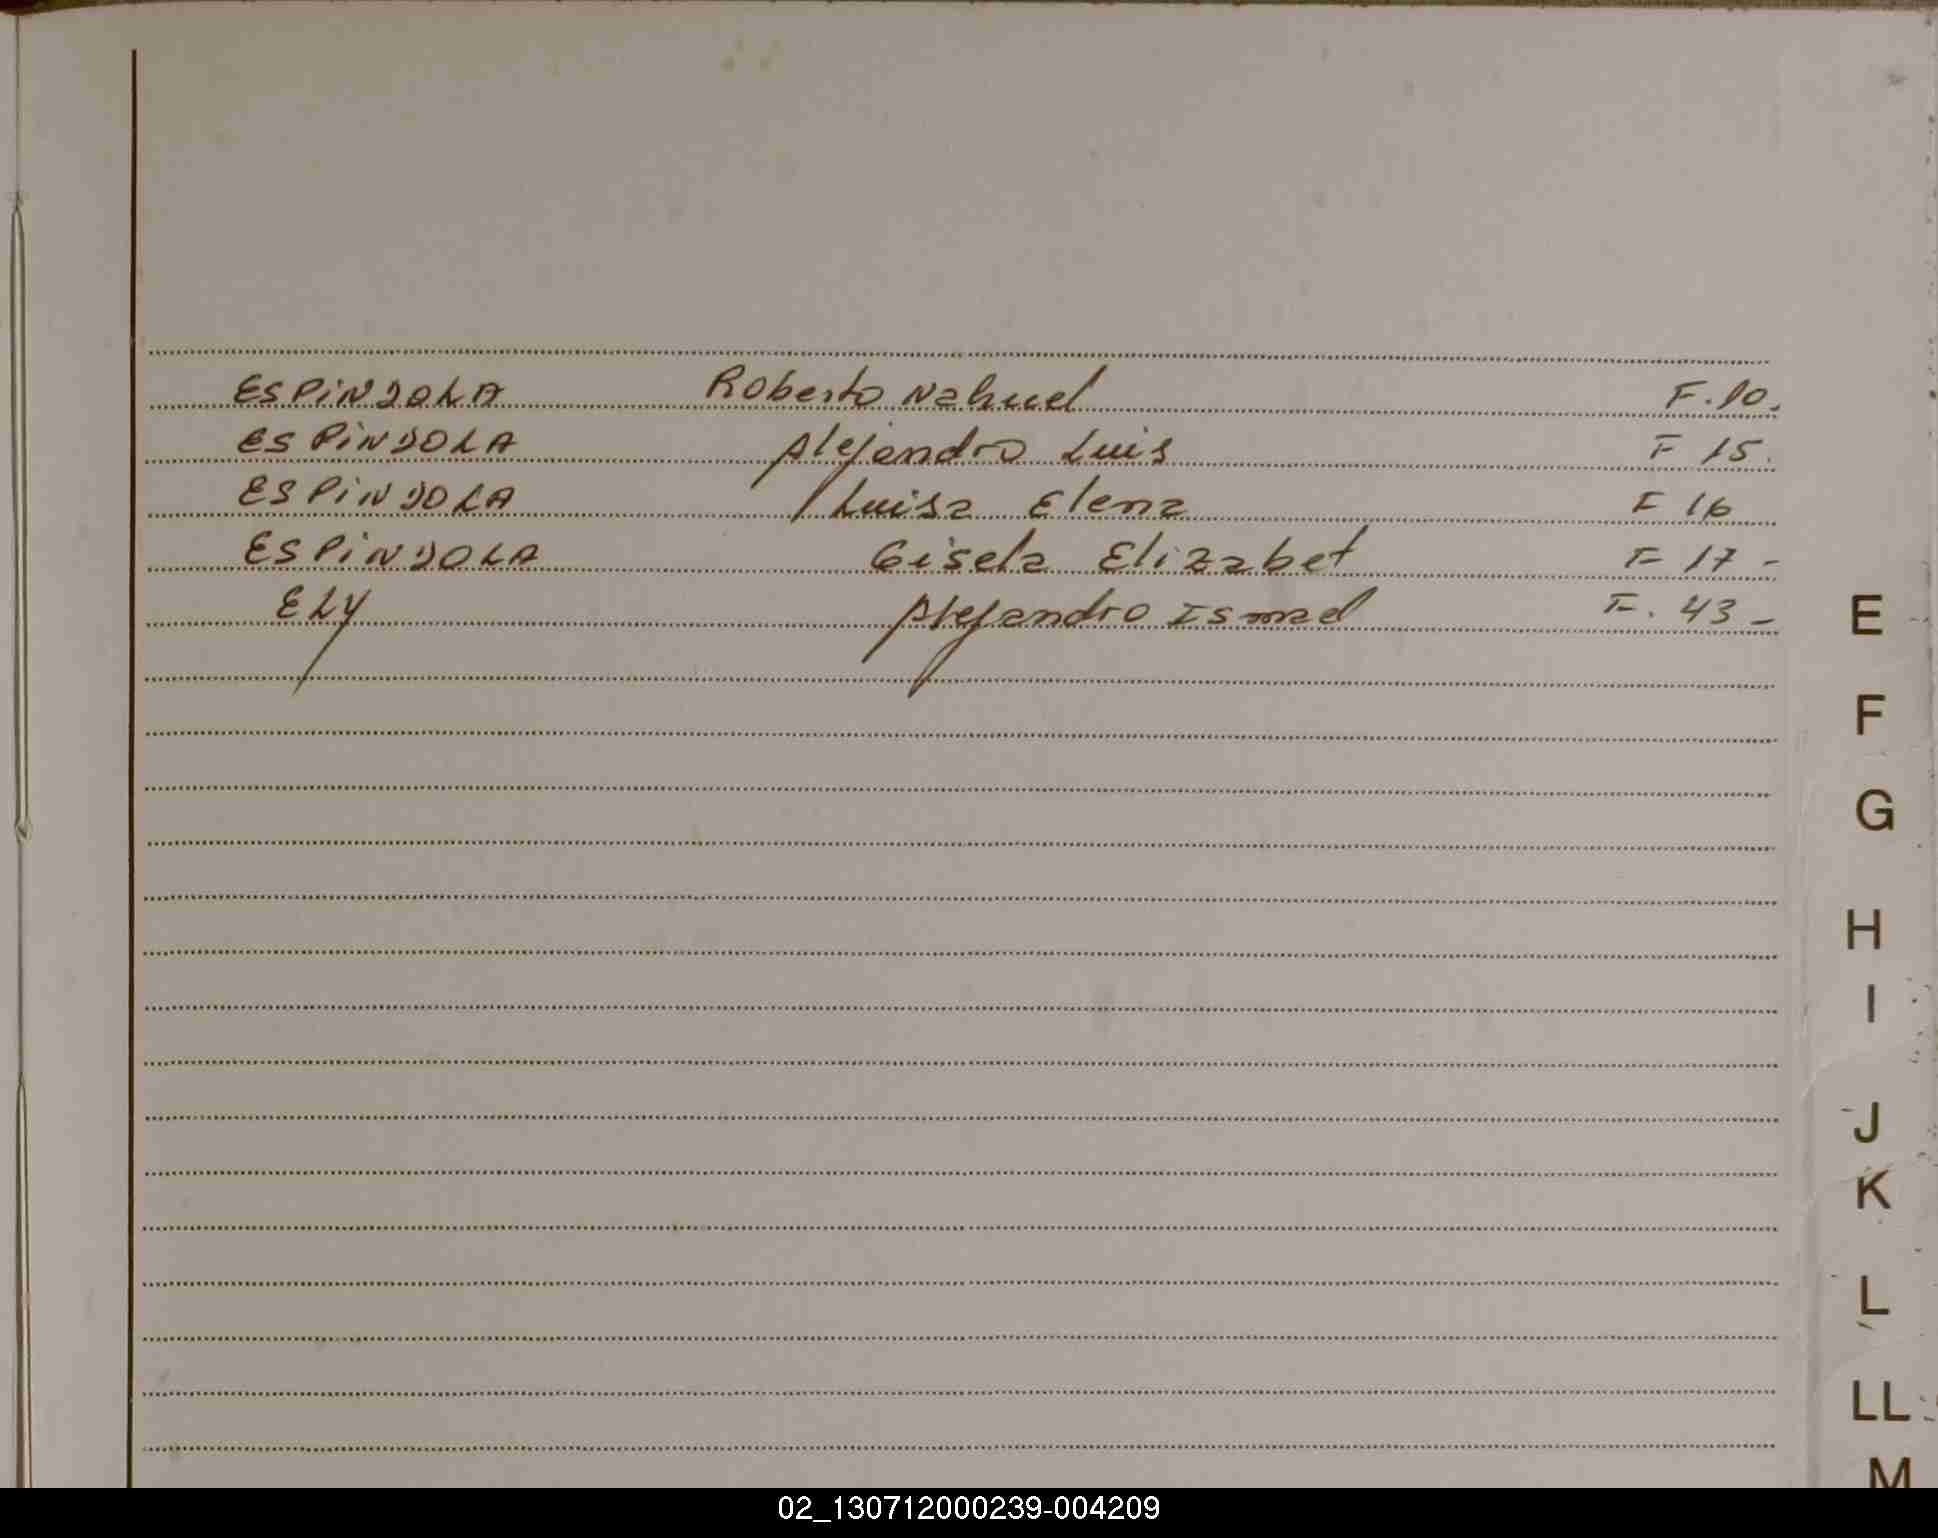 ESPiNDOLA Roberto Nahuel F.10.
ESPiNDOLA Alejandro Luis F 15.
ESPiNDOLA Luisa Elena F 16
ESPiNDOLA Gisela Elizabet F 17 -
ELY Alejandro Ismael F. 43 -
E
F
G
H
I
J
K
L
LL
M
02_130712000239-004209